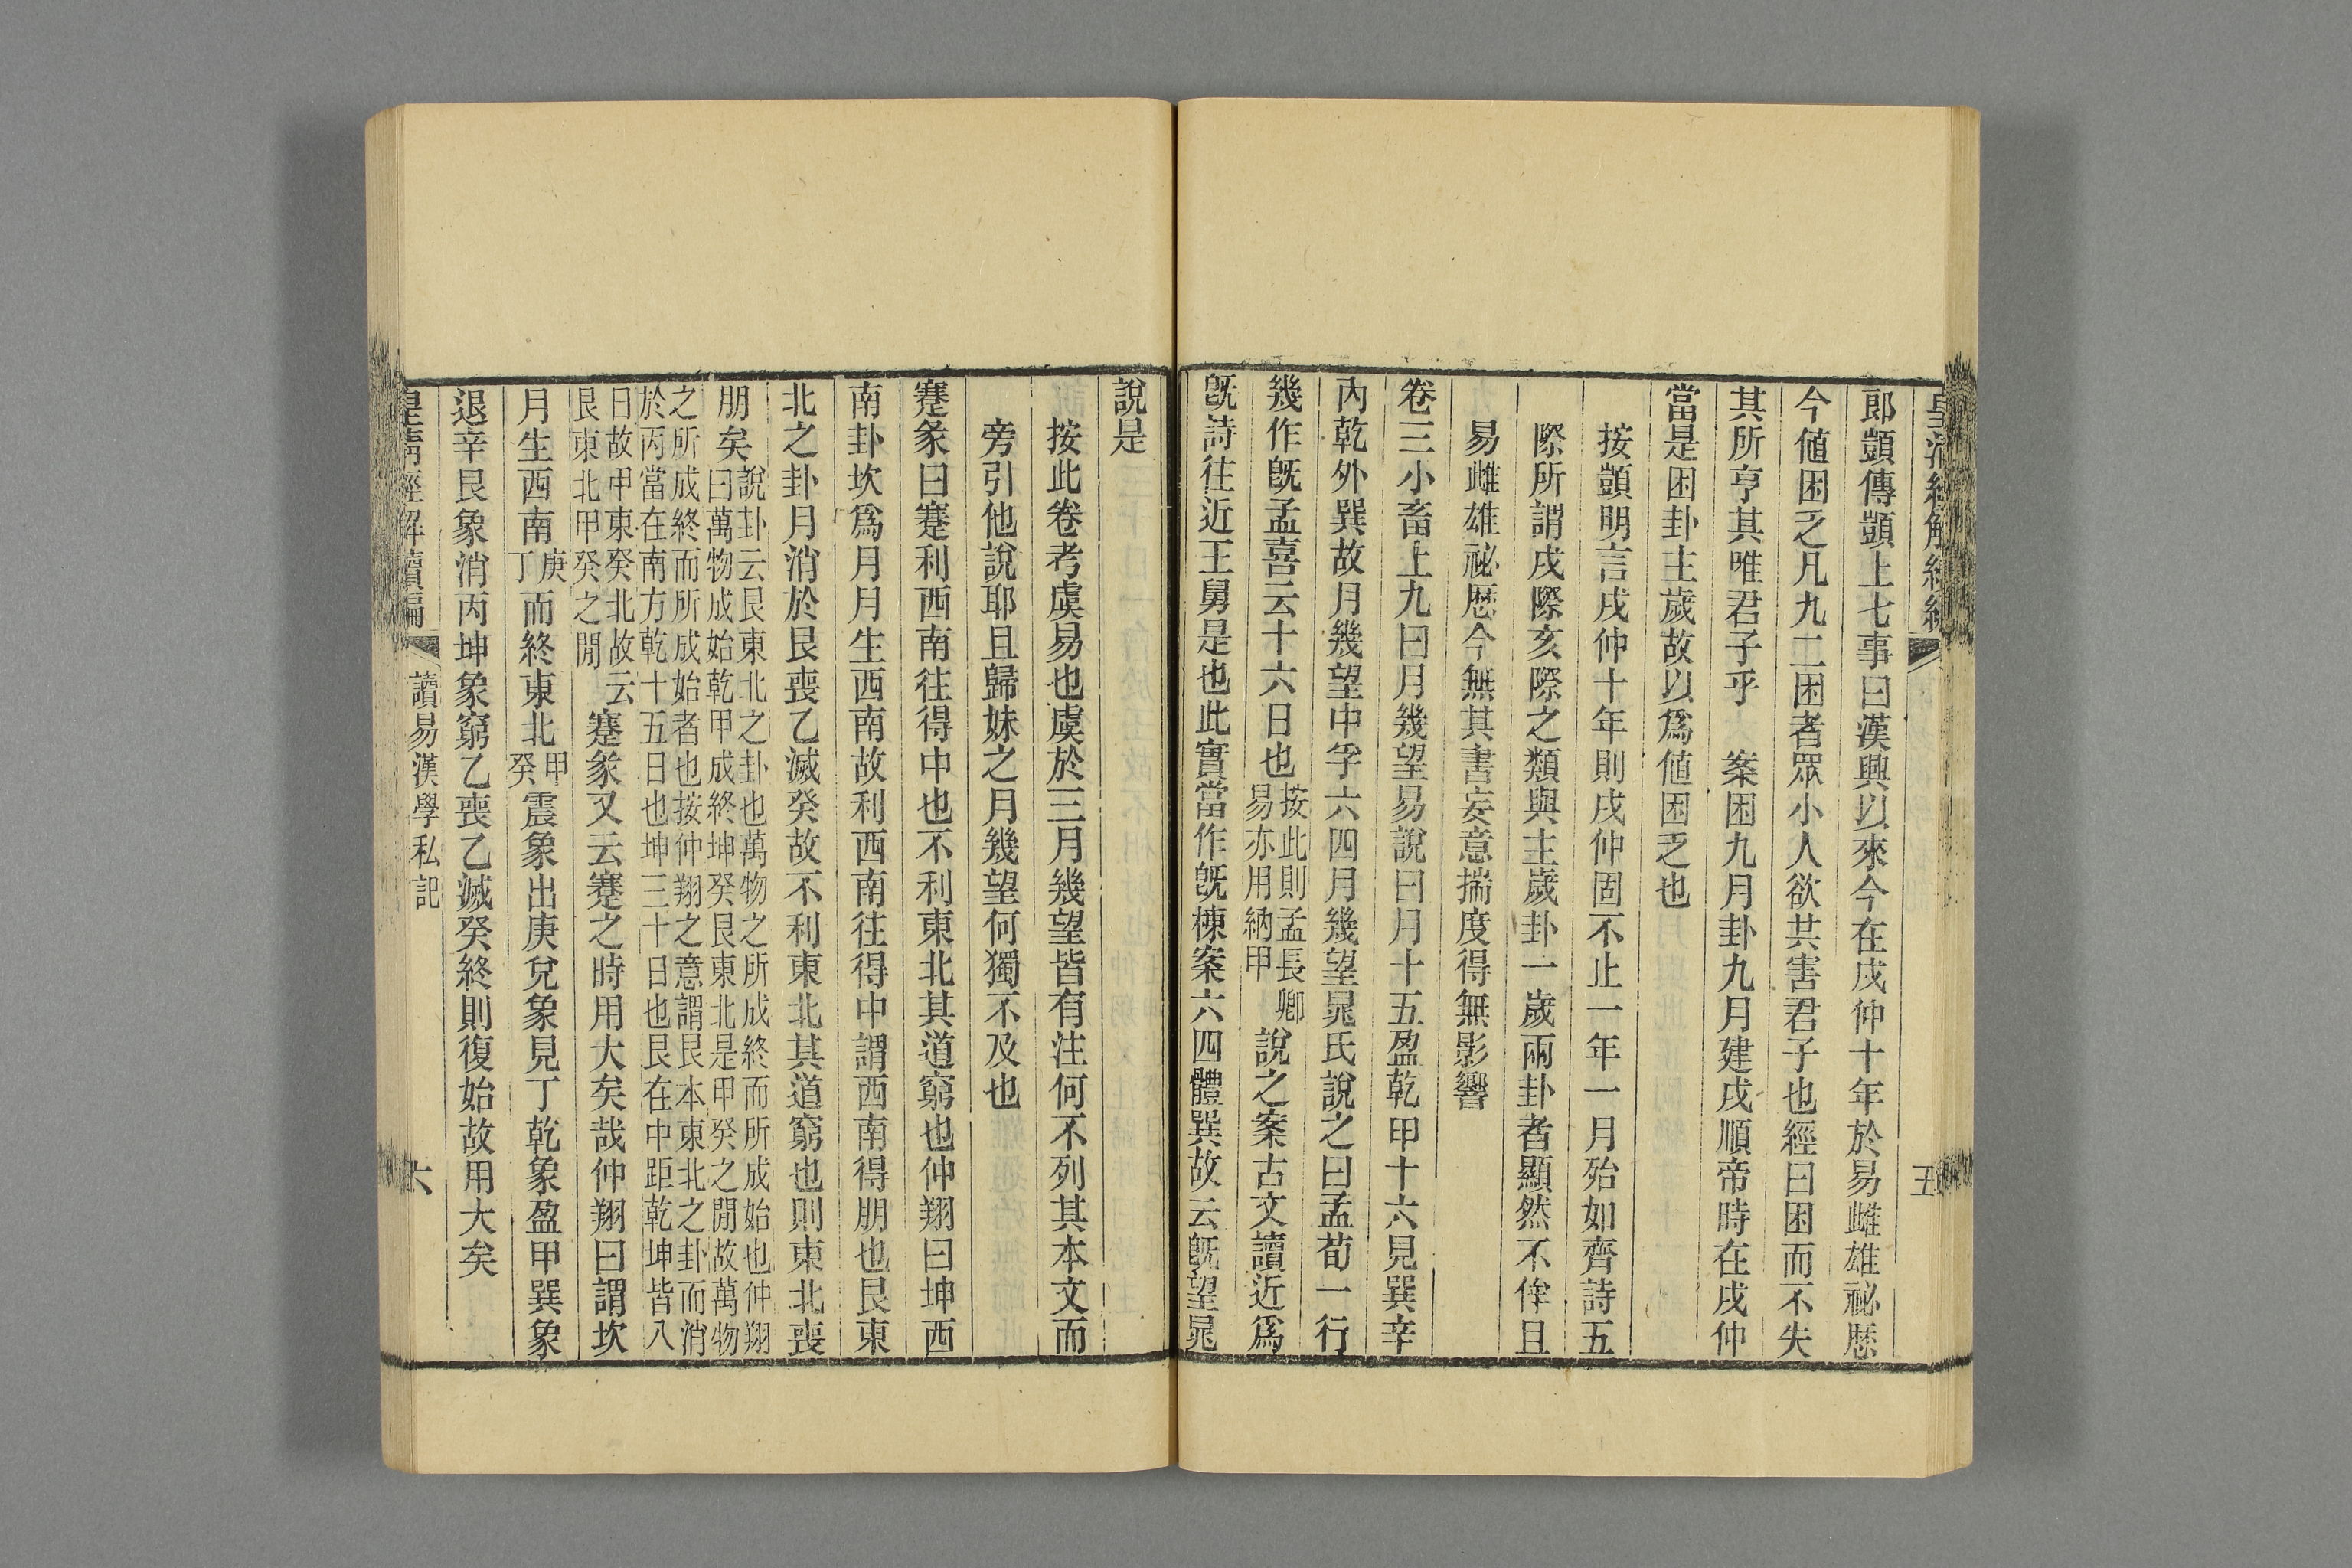 皇清經解續編
五
郎顗傳顗上七事曰漢興以來今在戌仲十年於易雌雄祕厯
今値困乏凡九二困者眾小人欲共害君子也經曰困而不失
其所亨其唯君子乎 案困九月卦九月建戌順帝時在戌仲
當是困卦主歲故以爲値困乏也
按顗明言戌仲十年則戌仲固不止一年一月殆如齊詩五
際所謂戌際亥際之類與主歲卦一歲兩卦者顯然不侔且
易雌雄祕厯今無其書妄意揣度得無影響
卷三小畜上九曰月幾望易說曰月十五盈乾甲十六見巽辛
內乾外巽故月幾望中孚六四月幾望晁氏說之曰孟荀一行
幾作旣孟喜云十六日也按此則孟長卿易亦用納甲說之案古文讀近爲
旣詩往近王舅是也此實當作旣棟案六四體巽故云旣望晁
說是
按此卷考虞易也虞於三月幾望皆有注何不列其本文而
旁引他說耶且歸妹之月幾望何獨不及也
蹇彖曰蹇利西南往得中也不利東北其道窮也仲翔曰坤西
南卦坎爲月月生西南故利西南往得中謂西南得朋也艮東
北之卦月消於艮喪乙滅癸故不利東北其道窮也則東北喪
朋矣說卦云艮東北之卦也萬物之所成終而所成始也仲翔曰萬物成始乾甲成終坤癸艮東北是甲癸之閒故萬物
之所成終而所成始者也按仲翔之意謂艮本東北之卦而消於丙當在南方乾十五日也坤三十日也艮在中距乾坤皆八
日故甲東癸北故云艮東北甲癸之閒蹇彖又云蹇之時用大矣哉仲翔曰謂坎
月生西南庚丁而終東北甲癸震象出庚兌象見丁乾象盈甲巽象
退辛艮象消丙坤象窮乙喪乙滅癸終則復始故用大矣
皇清經解續編
讀易漢學私記
六